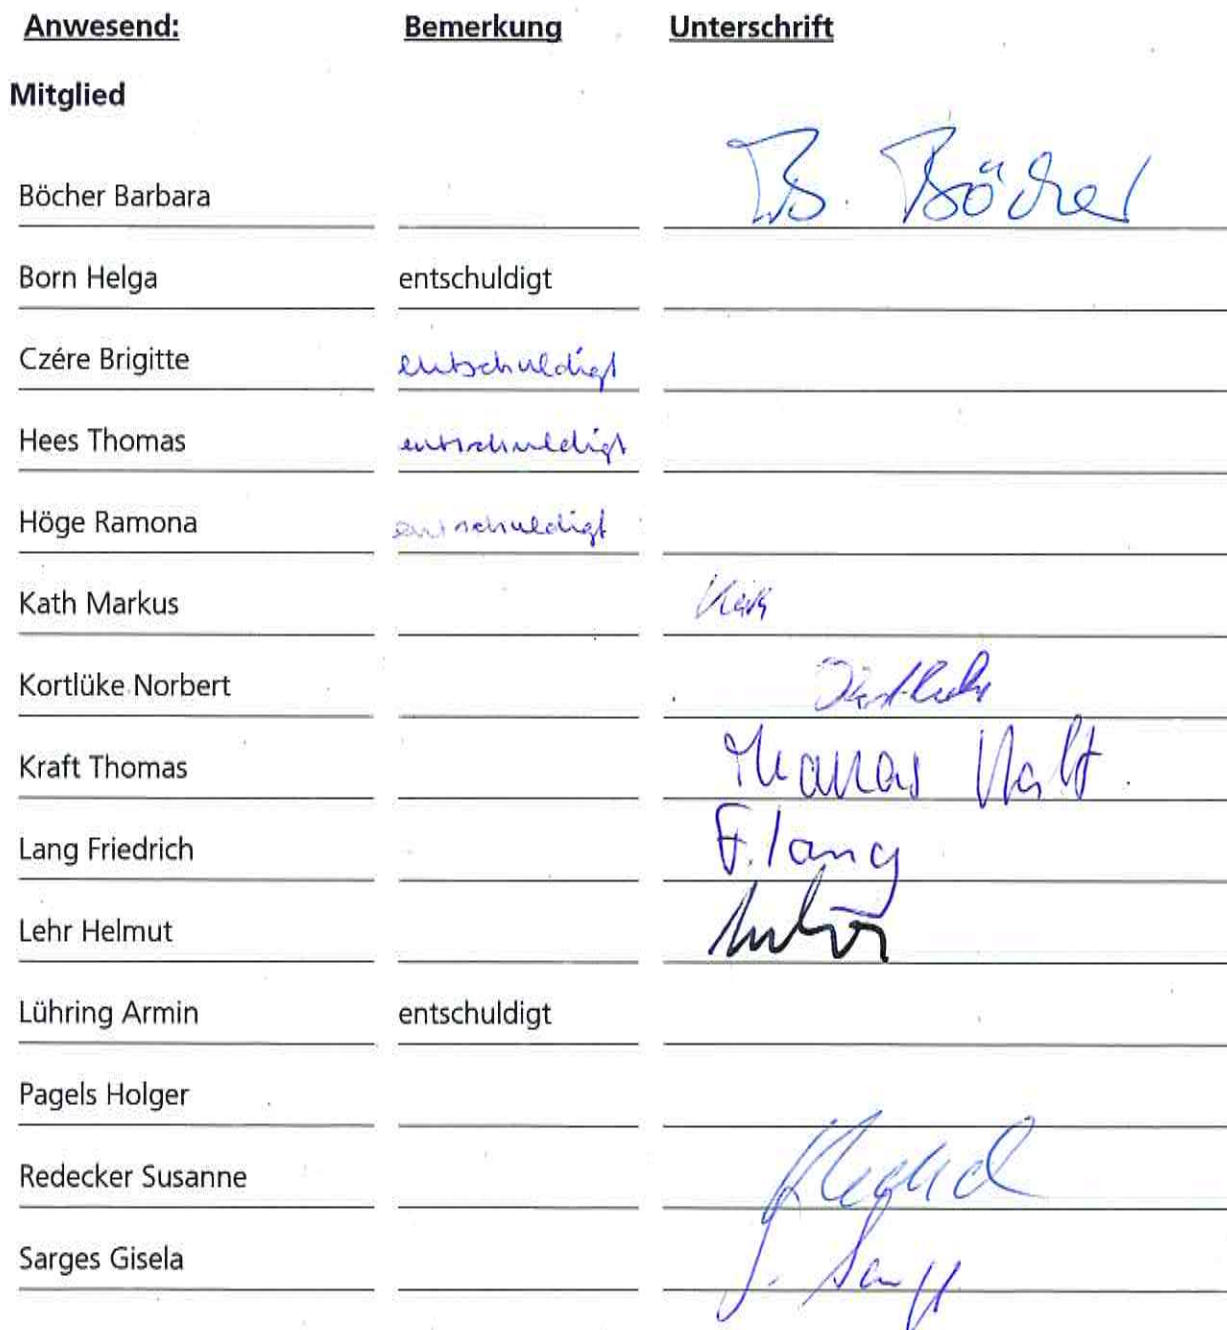 Anwesend: Bemerkung Unterschrift
Mitglied
Böcher Barbara B. Böcher
Born Helga entschuldigt
Czére Brigitte entschuldigt
Hees Thomas entschuldigt
Höge Ramona entschuldigt
Kath Markus Kath
Kortlüke Norbert
Kraft Thomas Thomas Kraft
Lang Friedrich F. Lang
Lehr Helmut
Lühring Armin entschuldigt
Pagels Holger
Redecker Susanne
Sarges Gisela